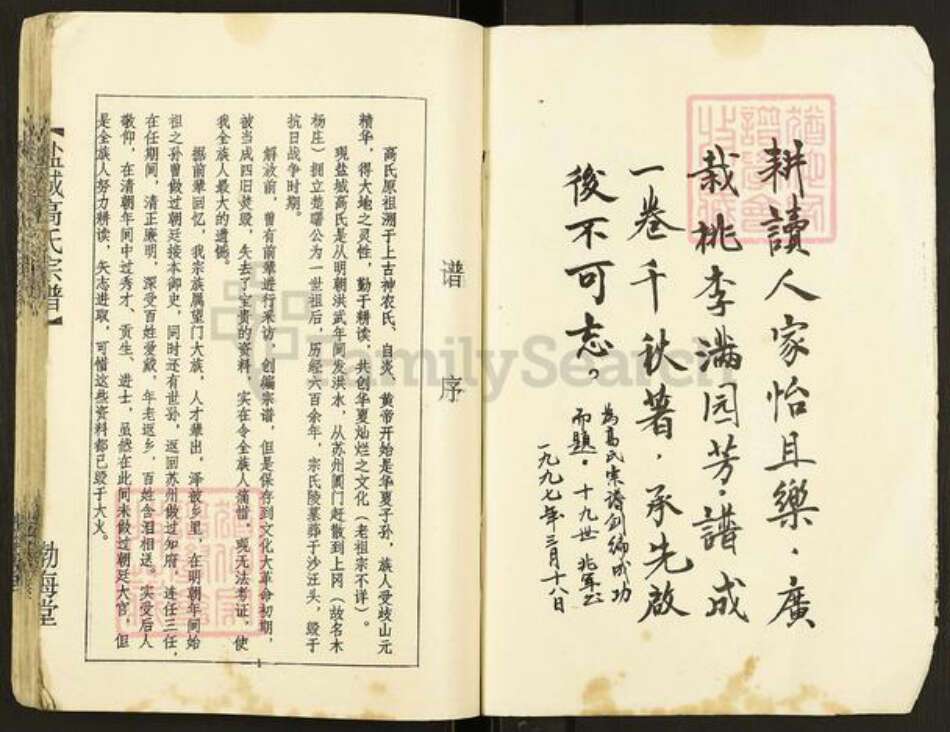 耕讀人家怡且樂．廣
栽桃李满园芳．譜成
一卷千秋著．承先啟
後不可忘。
為高氏宗谱创编成功
而题．十九世 兆军
一九九七年三月十八日
谱序
高氏原祖溯于上古神农氏、自炎、黄帝开始是华夏子孙，族人受歧山元
精华，得大地之灵性，勤于耕读，共创华夏灿烂之文化（老祖宗不详）。
现盐城高氏是从明朝洪武年间发洪水，从苏州阊门赶散到上冈（故名木
杨庄）拥立楚曙公为一世祖后，历经六百余年，宗氏陵墓葬于沙汪头，毁于
抗日战争时期。
解放前，曾有前辈进行采访，创编宗谱，但是保存到文化大革命初期，
被当成四旧焚毁，失去了宝贵的资料，实在令全族人痛惜，现无法考证，使
我全族人最大的遗憾。
据前辈回忆，我宗族属望门大族，人才辈出，泽被乡里，在明朝年间始
祖之孙曾做过朝廷接本御史，同时还有世孙，返回苏州做过知府，连任三任，
在任期间，清正廉明，深受百姓爱戴，年老返乡，百姓含泪相送。实受后人
敬仰，在清朝年间中过秀才、贡生、进士，虽然在此间未做过朝廷大官，但
是全族人努力耕读，矢志进取，可惜这些资料都已毁于大火。
1
【盐城高氏宗谱】
渤海堂
FamilySearch